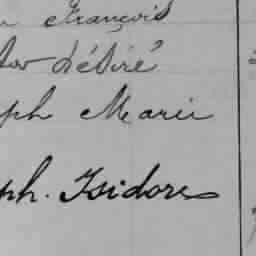 François
Désiré
ph Marie
ph. Isidore